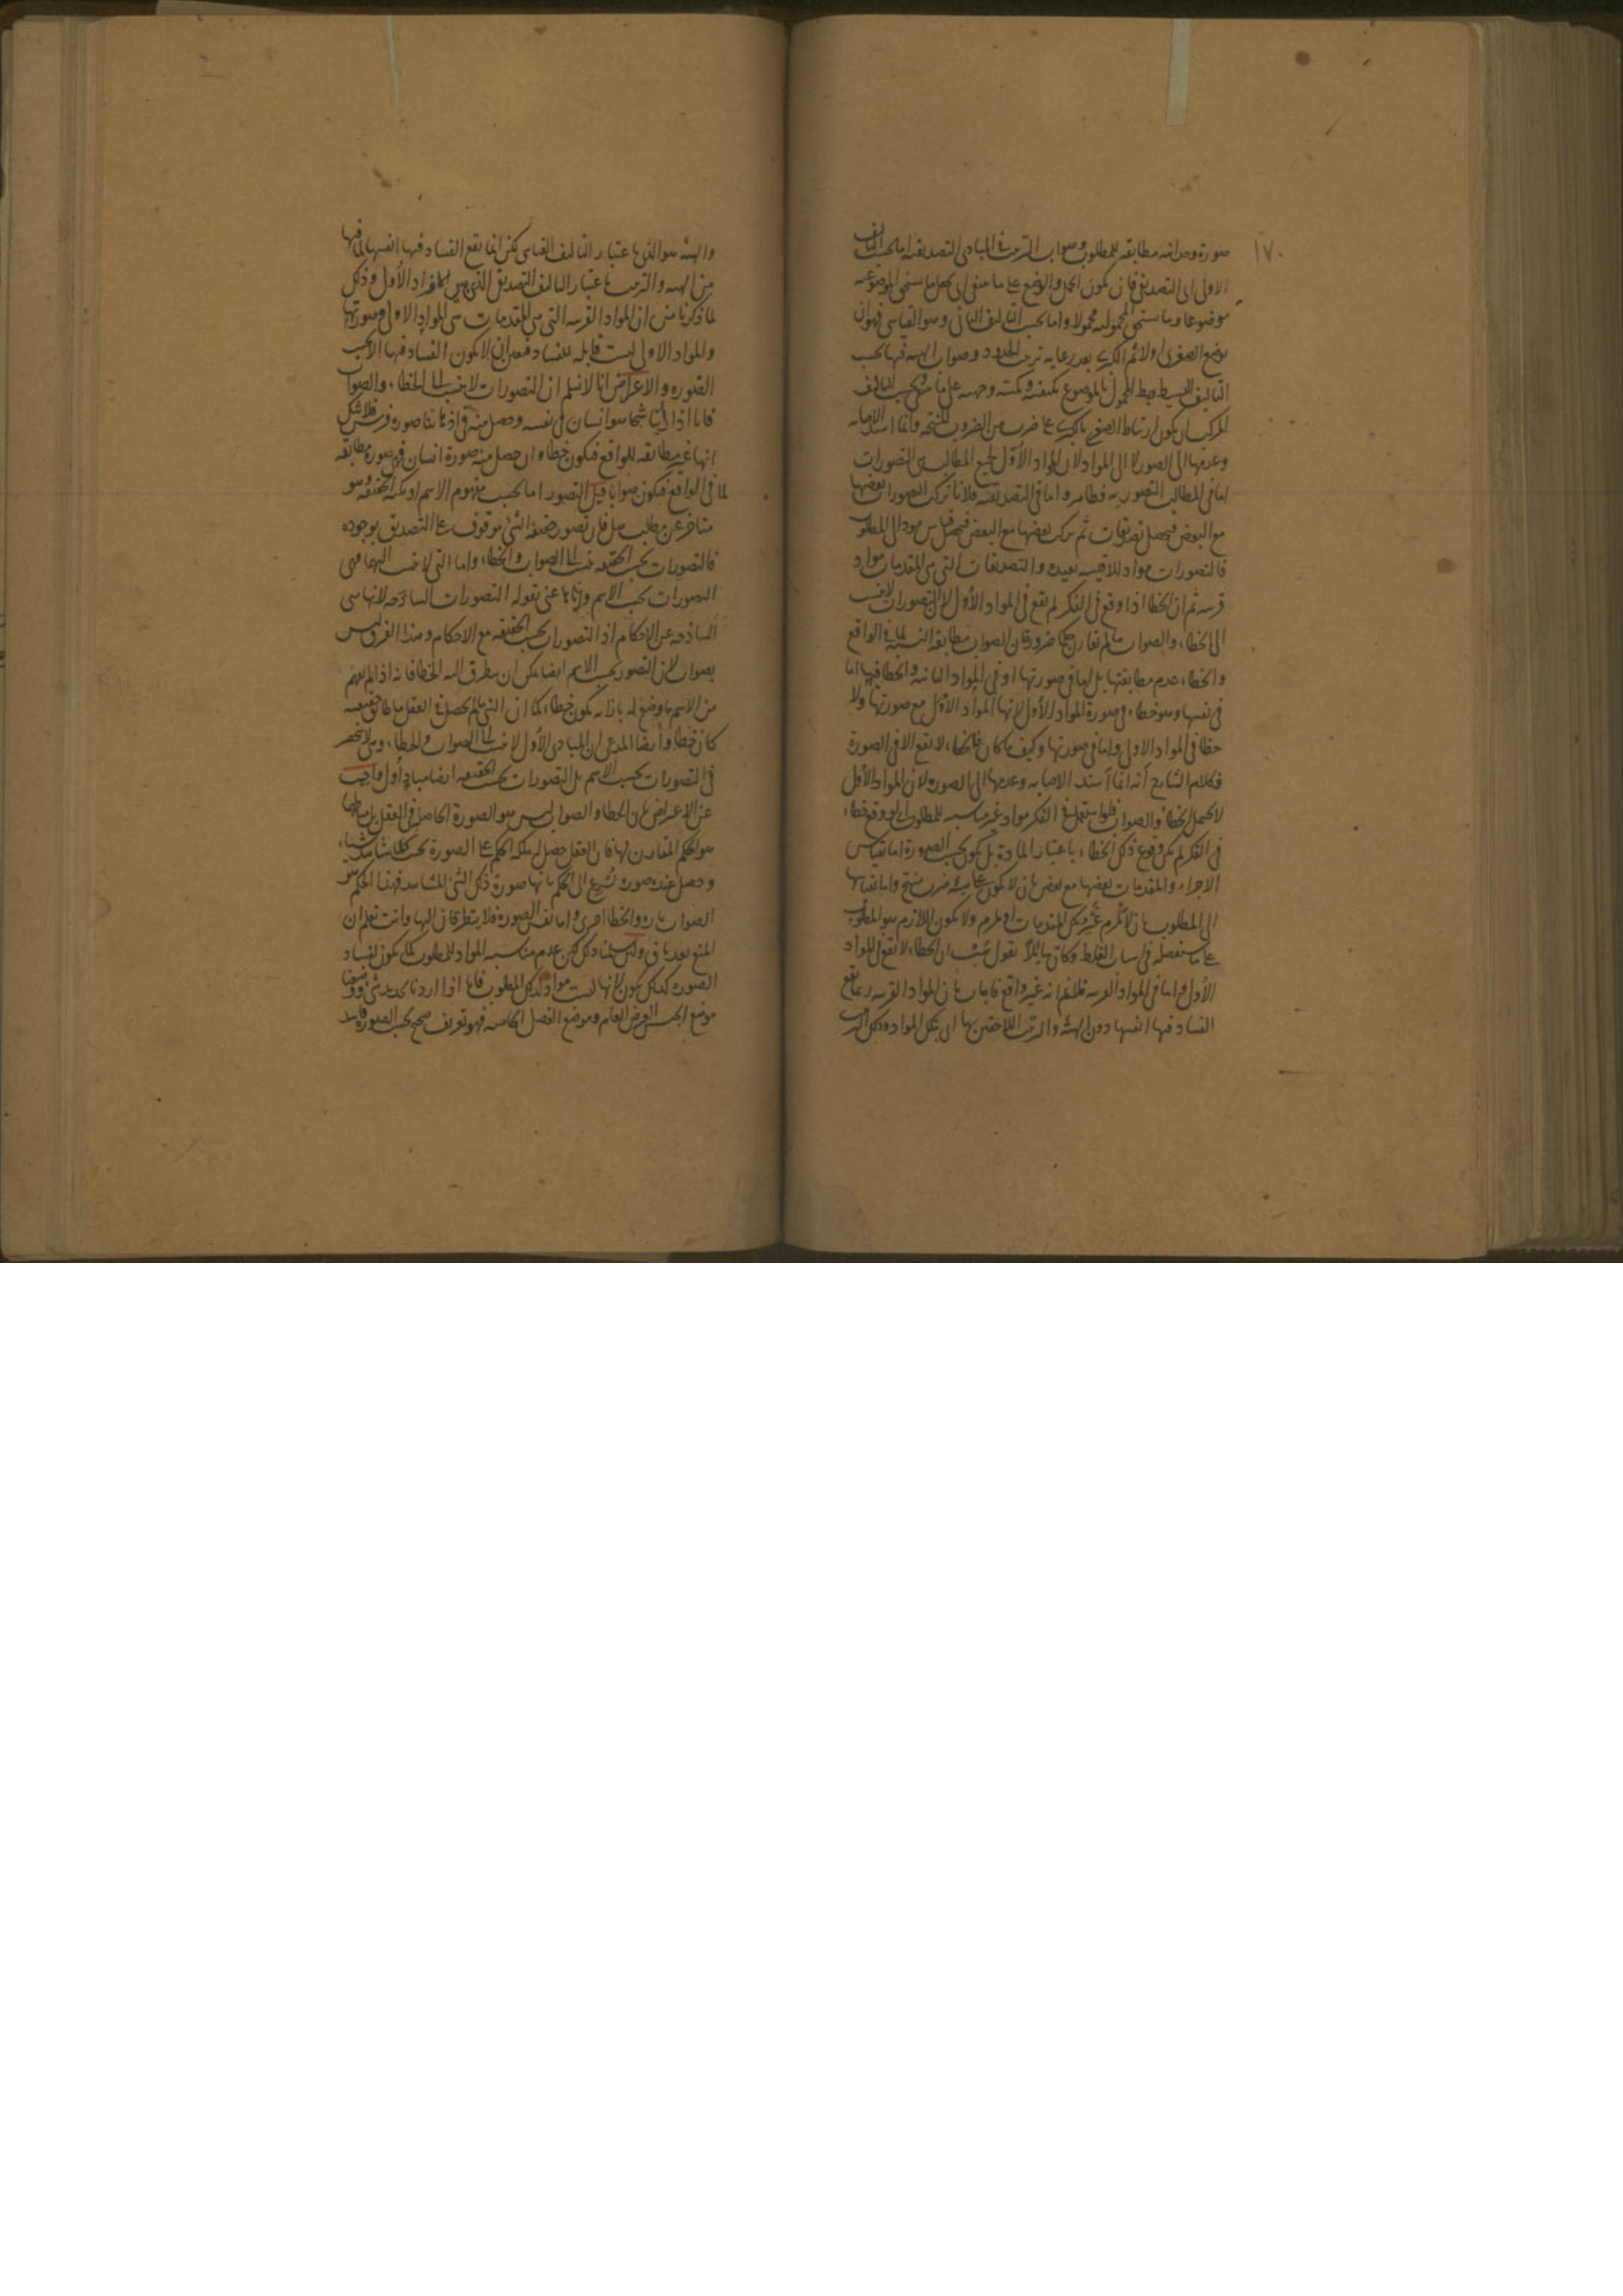 ١٧٠
صورة وحدانية مطابقة للمطلوب وصواب الترتيب في المبادي التصديقية اما بحسب التاليف
الاولى الى التصديق فان يكون الحمل والوضع على ما ينبغي اي يجعل ما يستحق الموضوعية
موضوعا وما يستحق المحمولية محمولا واما بحسب التاليف الثاني وهو القياسي فهو ان
يوضع الصغرى اولا ثم الكبرى بعد رعاية ترتيب الحدود وصواب الهيئة فيها بحسب
التاليف البسيط ربط المحمول بالموضوع بكيفية وكمية وجهة على ما ينبغي وبحسب التاليف
المركب ان يكون ارتباط الصغرى بالكبرى على ضرب من الضروب المنتجة وانما اسند الاصابة
وعدمها الى الصورة لا الى المواد لان المواد الاول لجميع المطالب هي التصورات
اما في المطالب التصورية فظاهر واما في التصديقية فلانا نركب التصورات بعضها
مع البعض فيحصل تصديقات ثم نركب بعضها مع البعض فيحصل قياس مود الى المطلوب
فالتصورات مواد للاقيسة بعيدة والتصديقات التي هي المقدمات مواد
قريبة ثم ان الخطا اذا وقع في الفكر لم يقع في المواد الاول لان التصورات لا ينسب
الى الخطاء والصواب ما لم تقارن حكما ضرورة ان الصواب مطابقة النسبة لما في الواقع
والخطاء عدم مطابقتها بل اما في صورتها او في المواد الثانية والخطا فيها اما
في نفسها وهو خطاء في صورة المواد الاول لانها المواد الاول مع صورتها ولا
خطا في المواد الاول واما في صورتها وكيف ما كان فالخطاء لا تقع الا في الصورة
فكلام الشارح انه انما اسند الاصابة وعدمها الى الصورة لان المواد الاول
لا تحتمل الخطا والصواب فلو استعمل في الفكر مواد غير مناسبة للمطلوب او وقع خطاء
في الفكر لم يكن وقوع ذلك الخطاء باعتبار المادة بل يكون بحسب الصورة اما بقياس
الاجزاء والمقدمات بعضها مع بعض بان لا يكون على هيئة ضرب منتج واما بقياسها
الى المطلوب بان لا يلزم عن تلك المقدمات او يلزم ولا يكون اللازم هو المطلوب
على ما سنفصله في بيان الغلط وكان قايلا يقول هب ان الخطاء لا تقع في المواد
الاول واما في المواد القريبة فلا نم انه غير واقع فاجاب بان المواد القريبة ربما يقع
الفساد فيها انفسها دون الهيئة والترتيب اللاحقين بها اي بتلك المواد وذلك الترتيب
والهيئة هو الذي باعتبار التاليف القياسي لكن انما تقع الفساد فيها انفسها لما فيها
من الهيئة والترتيب باعتبار التاليف التصديقي الذي هي للافراد الاول وذلك
لما ذكرنا من ان المواد القريبة التي هي المقدمات هي المواد الاولى وصورتها
والمواد الاول ليست قابلة للفساد فتعين ان لا يكون الفساد فيها الا بحسب
الصورة والاعتراض انا لا نسلم ان التصورات لا ينسب الى الخطاء والصواب
فانا اذا راينا شبحا هو انسان في نفسه وحصل منه في اذهاننا صورة فرس فلا شك
انها غير مطابقة للواقع فتكون خطاء وان حصل منه صورة انسان فهي صورة مطابقة
لما في الواقع فتكون صوابا قيل التصور اما بحسب مفهوم الاسم او بحسب الحقيقة وهو
متاخر عن مطلب هل فان تصور حقيقة الشئ موقوف على التصديق بوجوده
فالتصورات بحسب الحقيقة ينسب الى الصواب والخطاء واما التي لا ينسب اليهما فهي
التصورات بحسب الاسم وايانا عنى بقوله التصورات الساذجة لانها هي
الساذجة عن الاحكام اذ التصورات بحسب الحقيقة مع الاحكام وهذا الفرق ليس
بصواب لان التصور بحسب الاسم ايضا يمكن ان يتطرق اليه الخطا فانه اذا لم يفهم
من الاسم ما وضع له بازائه يكون خطاء كما ان الشئ ما لم يحصل في العقل ما طابق حقيقته
كان خطا وايضا المدعى ان المبادي الاول لا ينسب الى الصواب والخطاء وهي لا تنحصر
في التصورات بحسب الاسم بل التصورات بحسب الحقيقة ايضا مباد اول واجيب
عن الاعتراض بان الخطا والصواب ليس هو الصورة الحاصلة في العقل بل مناطهما
هو الحكم المقارن لها فان العقل حصل له ملكة الحكم على الصورة بحيث كلما شاهد شيئا
وحصل عنده صورة تسرع الى الحكم بانها صورة ذلك الشئ المشاهد فهذا الحكم هو
الصواب تارة والخطا اخرى واما نفس الصورة فلا يتطرقان اليها وانت تعلم ان
المنع بعد باق ولئن سلمنا ذلك لكن عدم مناسبة المواد للمطلوب كما يكون لفساد
الصورة كذلك يكون لانها ليست مواد لذلك المطلوب فانا اذا اردنا تحديد شئ ووضعنا
موضع الجنس العرض العام وموضع الفصل الخاصة فهو تعريف صحيح بحسب الصورة فاسد